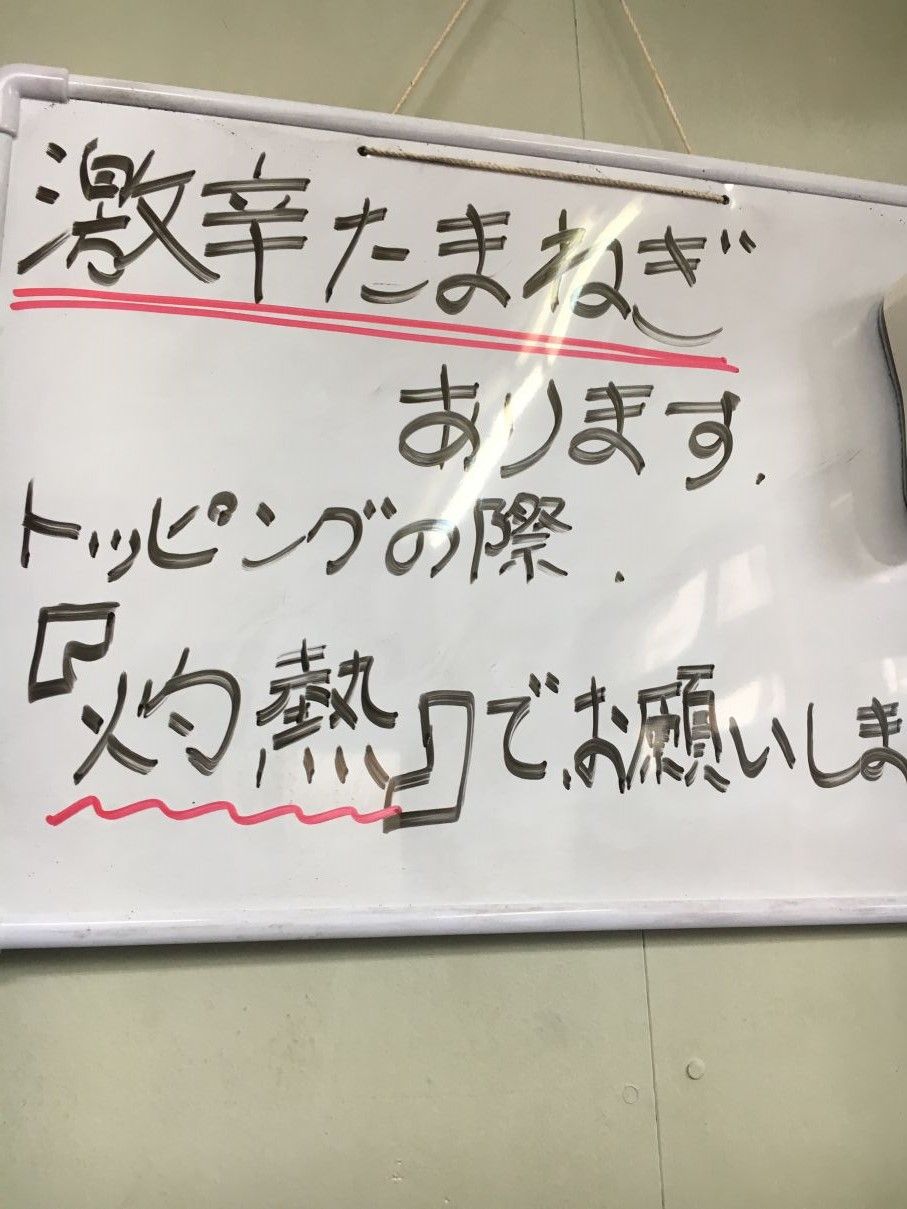 激辛たまねぎ
あります.
トッピングの際.
『灼熱』でお願いしま